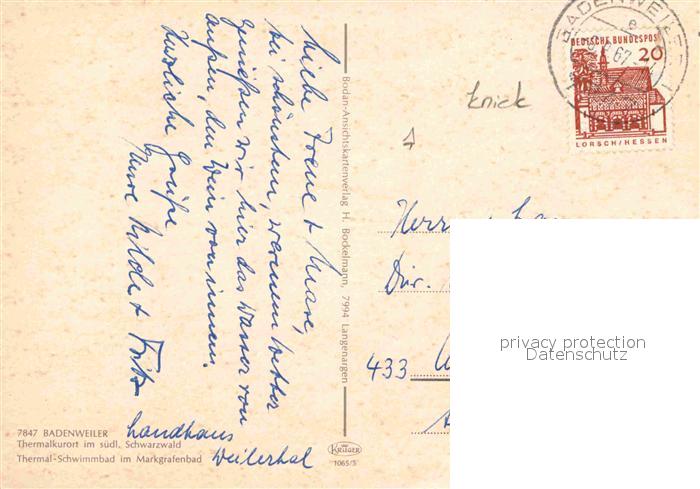 BADENWEILER
67
DEUTSCHE BUNDESPOST
20
LORSCH/HESSEN
knick
Liebe Irene + Marc,
bei schönstem, warmem Wetter
genießen wir hier das Wasser von
außen, den Wein von innen.
Herzliche Grüße
Eure Hilde + Fritz
Landhaus
Weilertal
Bodan-Ansichtskartenverlag H. Bockelmann, 7994 Langenargen
Herrn
Dir.
433
privacy protection
Datenschutz
7847 BADENWEILER
Thermalkurort im südl. Schwarzwald
Thermal-Schwimmbad im Markgrafenbad
KRÜGER
1065/5